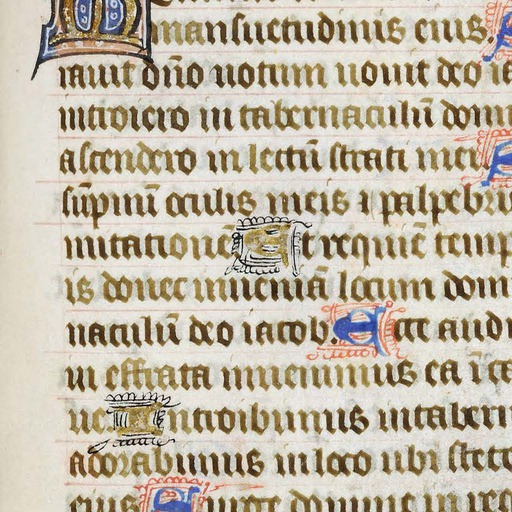 mansuetudinis eius. S
rauit dño uotum uouit deo ia
introiero in tabernaculũ dom
ascendero in lectũ strati mei S
sũpnũ oculis meis ⁊ palpebri
mitatione Et requiẽ temp
is donec inueniã locum dom
naculũ deo iacob. Ecce audi
in effrata inuenimus ea ĩ ca
ue. Introibimus in tabern
adorabimus in loco ubi stete
eius Surge domine in req